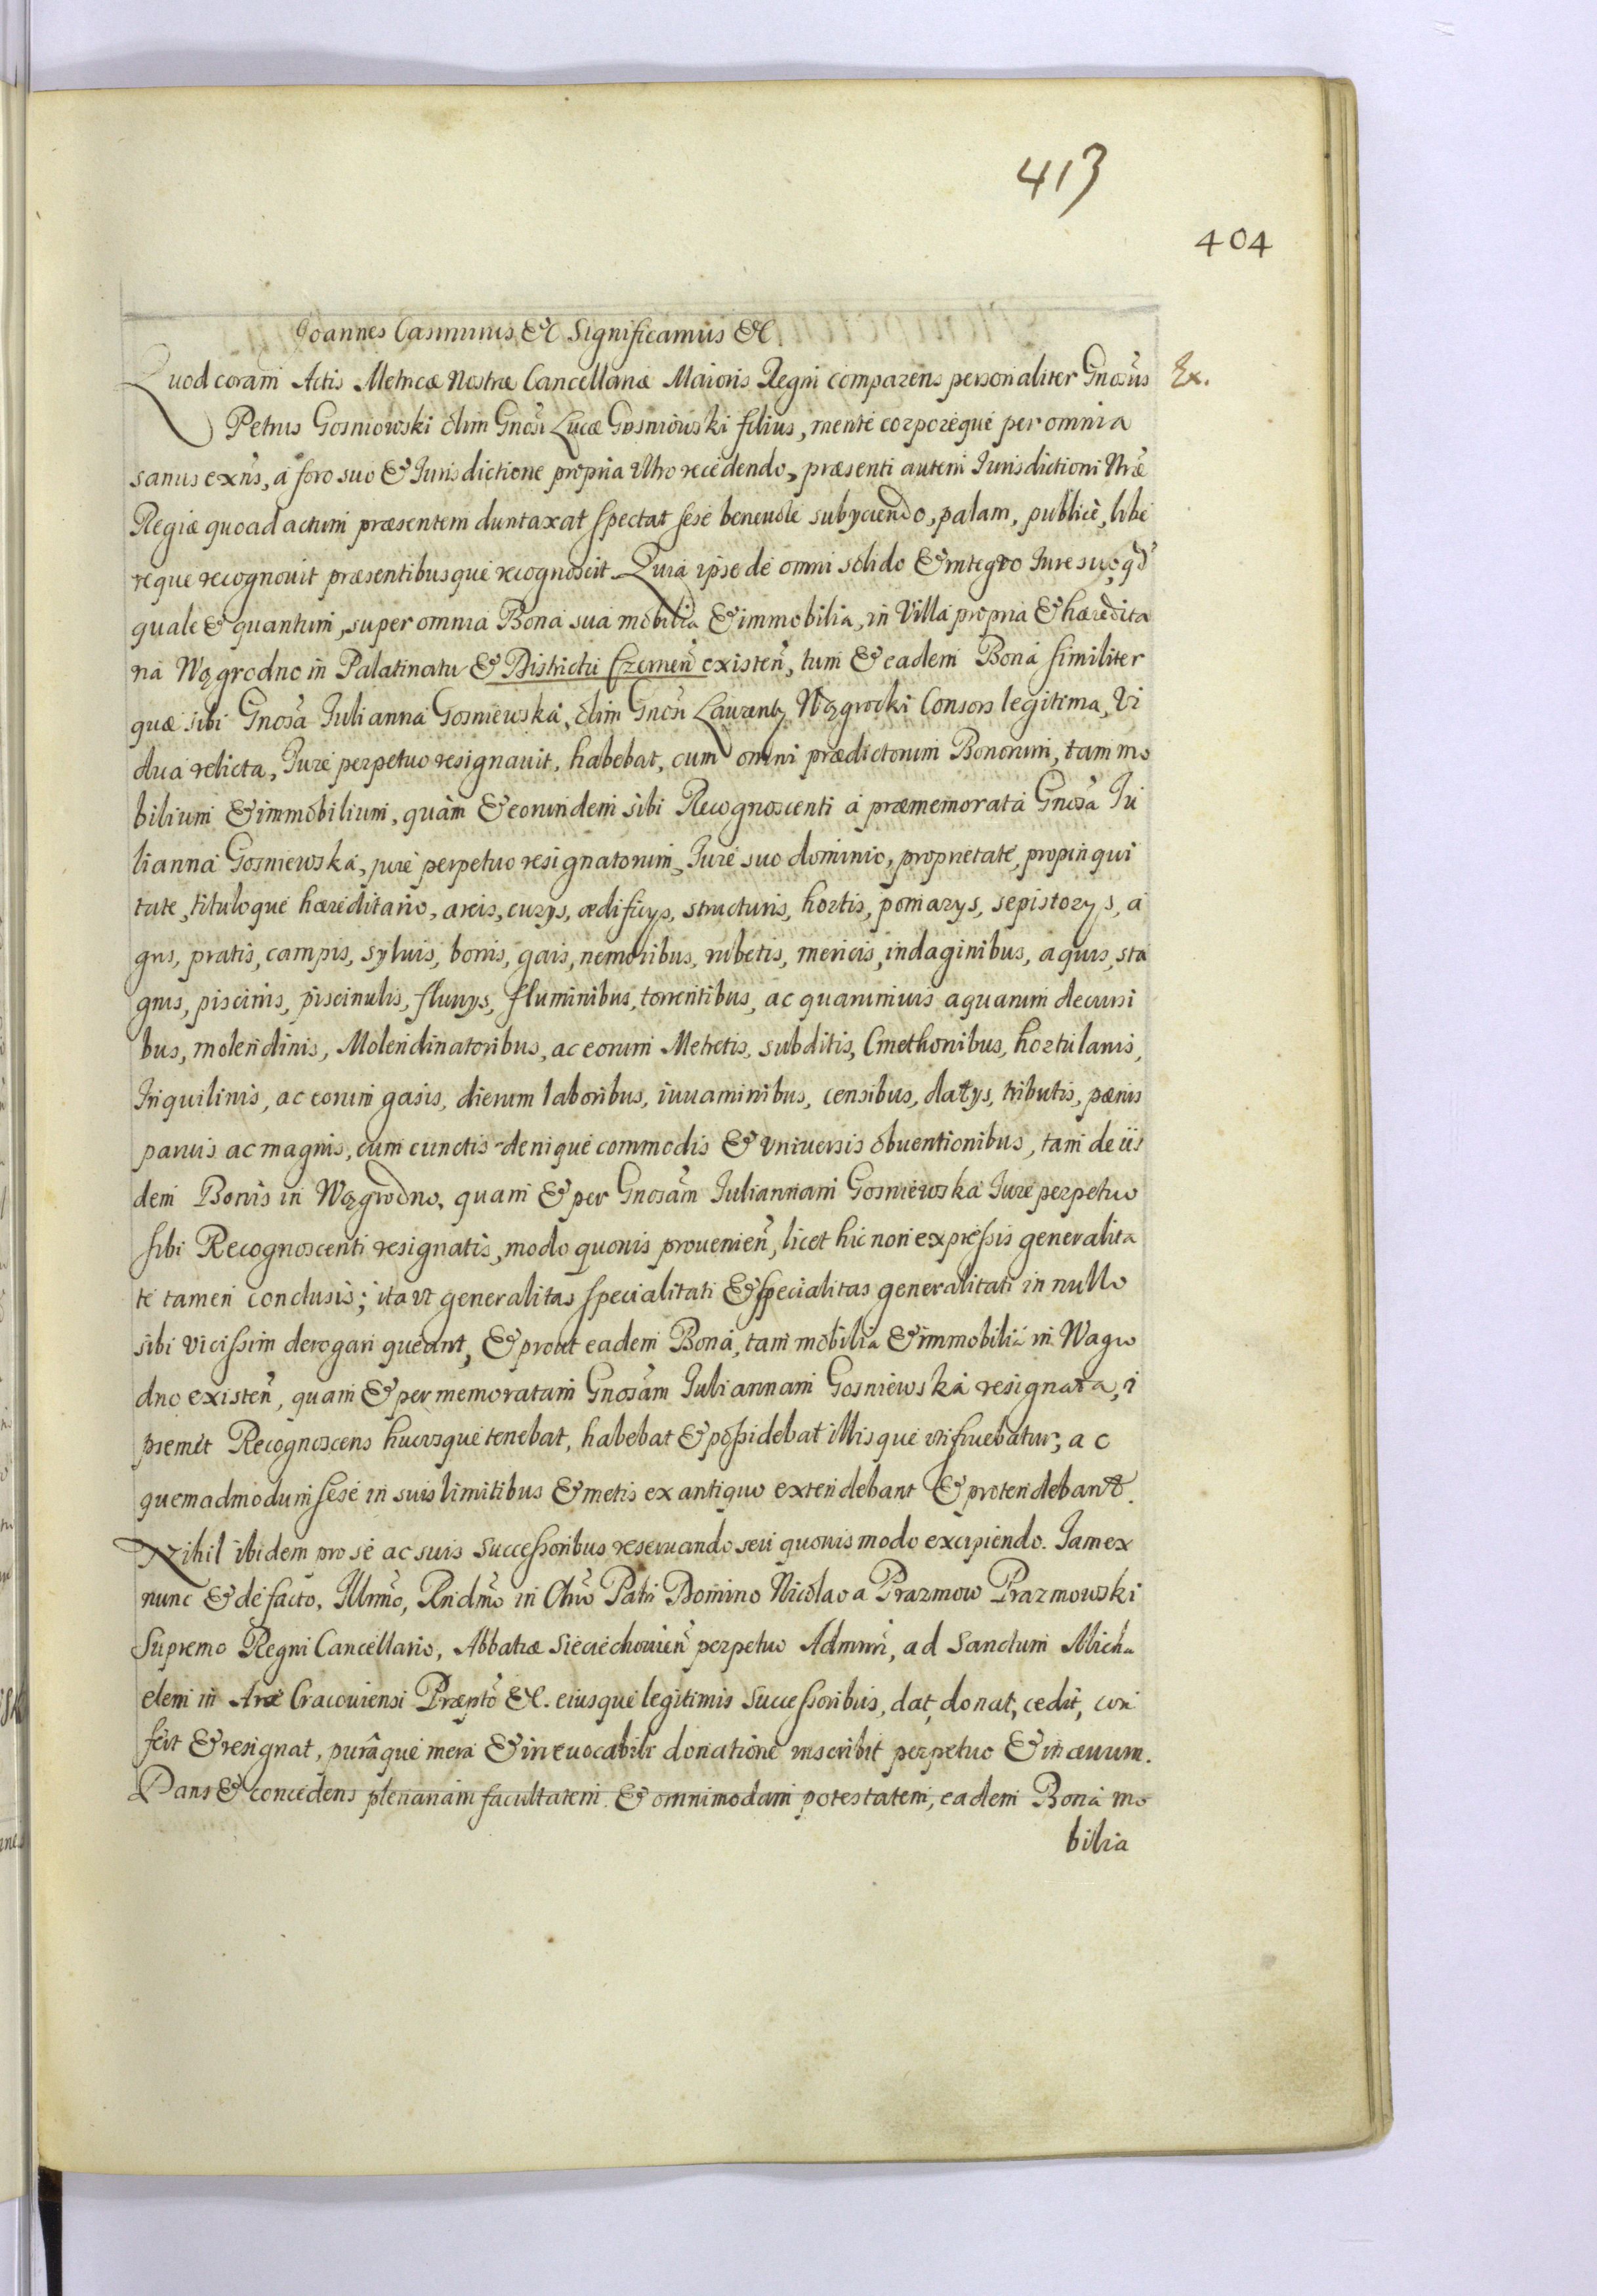 413
404
Joannes Casimirus &c Significamus &c.
Quod coram Actis Metricæ Nostræ Cancellariæ Maioris Regni comparens personaliter Gnosus Ex.
Petrus Gosniowski olim Gnosi Lucæ Gosniowski filius, mente corporeque per omnia
sanus exns, a foro suo & Jurisdictione propria vltro recedendo, præsenti autem Jurisdictioni Nræ
Regiæ quoad actum præsentem duntaxat spectat sese beneuole subyciendo, palam, publice, libe
reque recognouit præsentibusque recognoscit. Quia ipse de omni solido & integro Jure suo, qd
quale & quantum, super omnia Bona sua mobilia & immobilia, in Villa propria & hæredita
ria Wągrodno in Palatinatu & Districtu Czernen existen, tum & eadem Bona similiter
quæ sibi Gnosa Julianna Gosniewska, olim Gnosi Laurenty Wągrocki Consors legitima, Vi
dua relicta, Jure perpetuo resignauit, habebat, cum omni prædictorum Bonorum, tam mo
bilium & immobilium, quàm & eorundem sibi Recognoscenti a præmemorata Gnosa Ju
lianna Gosniewska, jure perpetuo resignatorum, Jure suo dominio, proprietate, propinqui
tate, tituloque hæreditario, areis, curys, ædificys, structuris, hortis, pomarys, sepistorys, a
gris, pratis, campis, syluis, borris, gais, nemoribus, rubetis, mericis, indaginibus, aquis, sta
gnis, piscinis, piscinulis, fluuys, fluminibus, torrentibus, ac quarumuis aquarum decursi
bus, molendinis, Molendinatoribus, ac eorum Metretis, subditis, Cmethonibus, hortulanis,
Inquilinis, ac eorum gasis, dierum laboribus, iuuaminibus, censibus, datys, tributis, pænis
paruis ac magnis, cum cunctis denique commodis & vniuersis obuentionibus, tam de iis
dem Bonis in Wągrodno, quam & per Gnosam Juliannam Gosniewska Jure perpetuo
sibi Recognoscenti resignatis, modo quouis prouenien, licet hic non expressis generalita
te tamen conclusis; ita vt generalitas specialitati & specialitas generalitati in nullo
sibi vicissim derogari queant, & prout eadem Bona, tam mobilia & immobilia in Wagro
dno existen, quam & per memoratam Gnosam Juliannam Gosniewska resignata, i
psemet Recognoscens hucusque tenebat, habebat & possidebat illisque vtifruebatur, ac
quemadmodum sese in suis limitibus & metis ex antiquo extendebant & protendebant.
Nihil ibidem pro se ac suis successoribus reseruando seu quouis modo excipiendo. Jam ex
nunc & de facto, Illrmo, Rndmo in Chro Patri Domino Nicolao a Prazmow Prazmowski
Supremo Regni Cancellario, Abbatiæ Sieciechouien perpetuo Admnri, ad Sanctum Micha
elem in Arce Cracouiensi Præpto &c. eiusque legitimis successoribus, dat, donat, cedit, con
fert & resignat, purâque mera & irreuocabili donatione inscribit perpetuo & in æuum.
Dans & concedens plenariam facultatem & omnimodam potestatem, eadem Bona mo
bilia